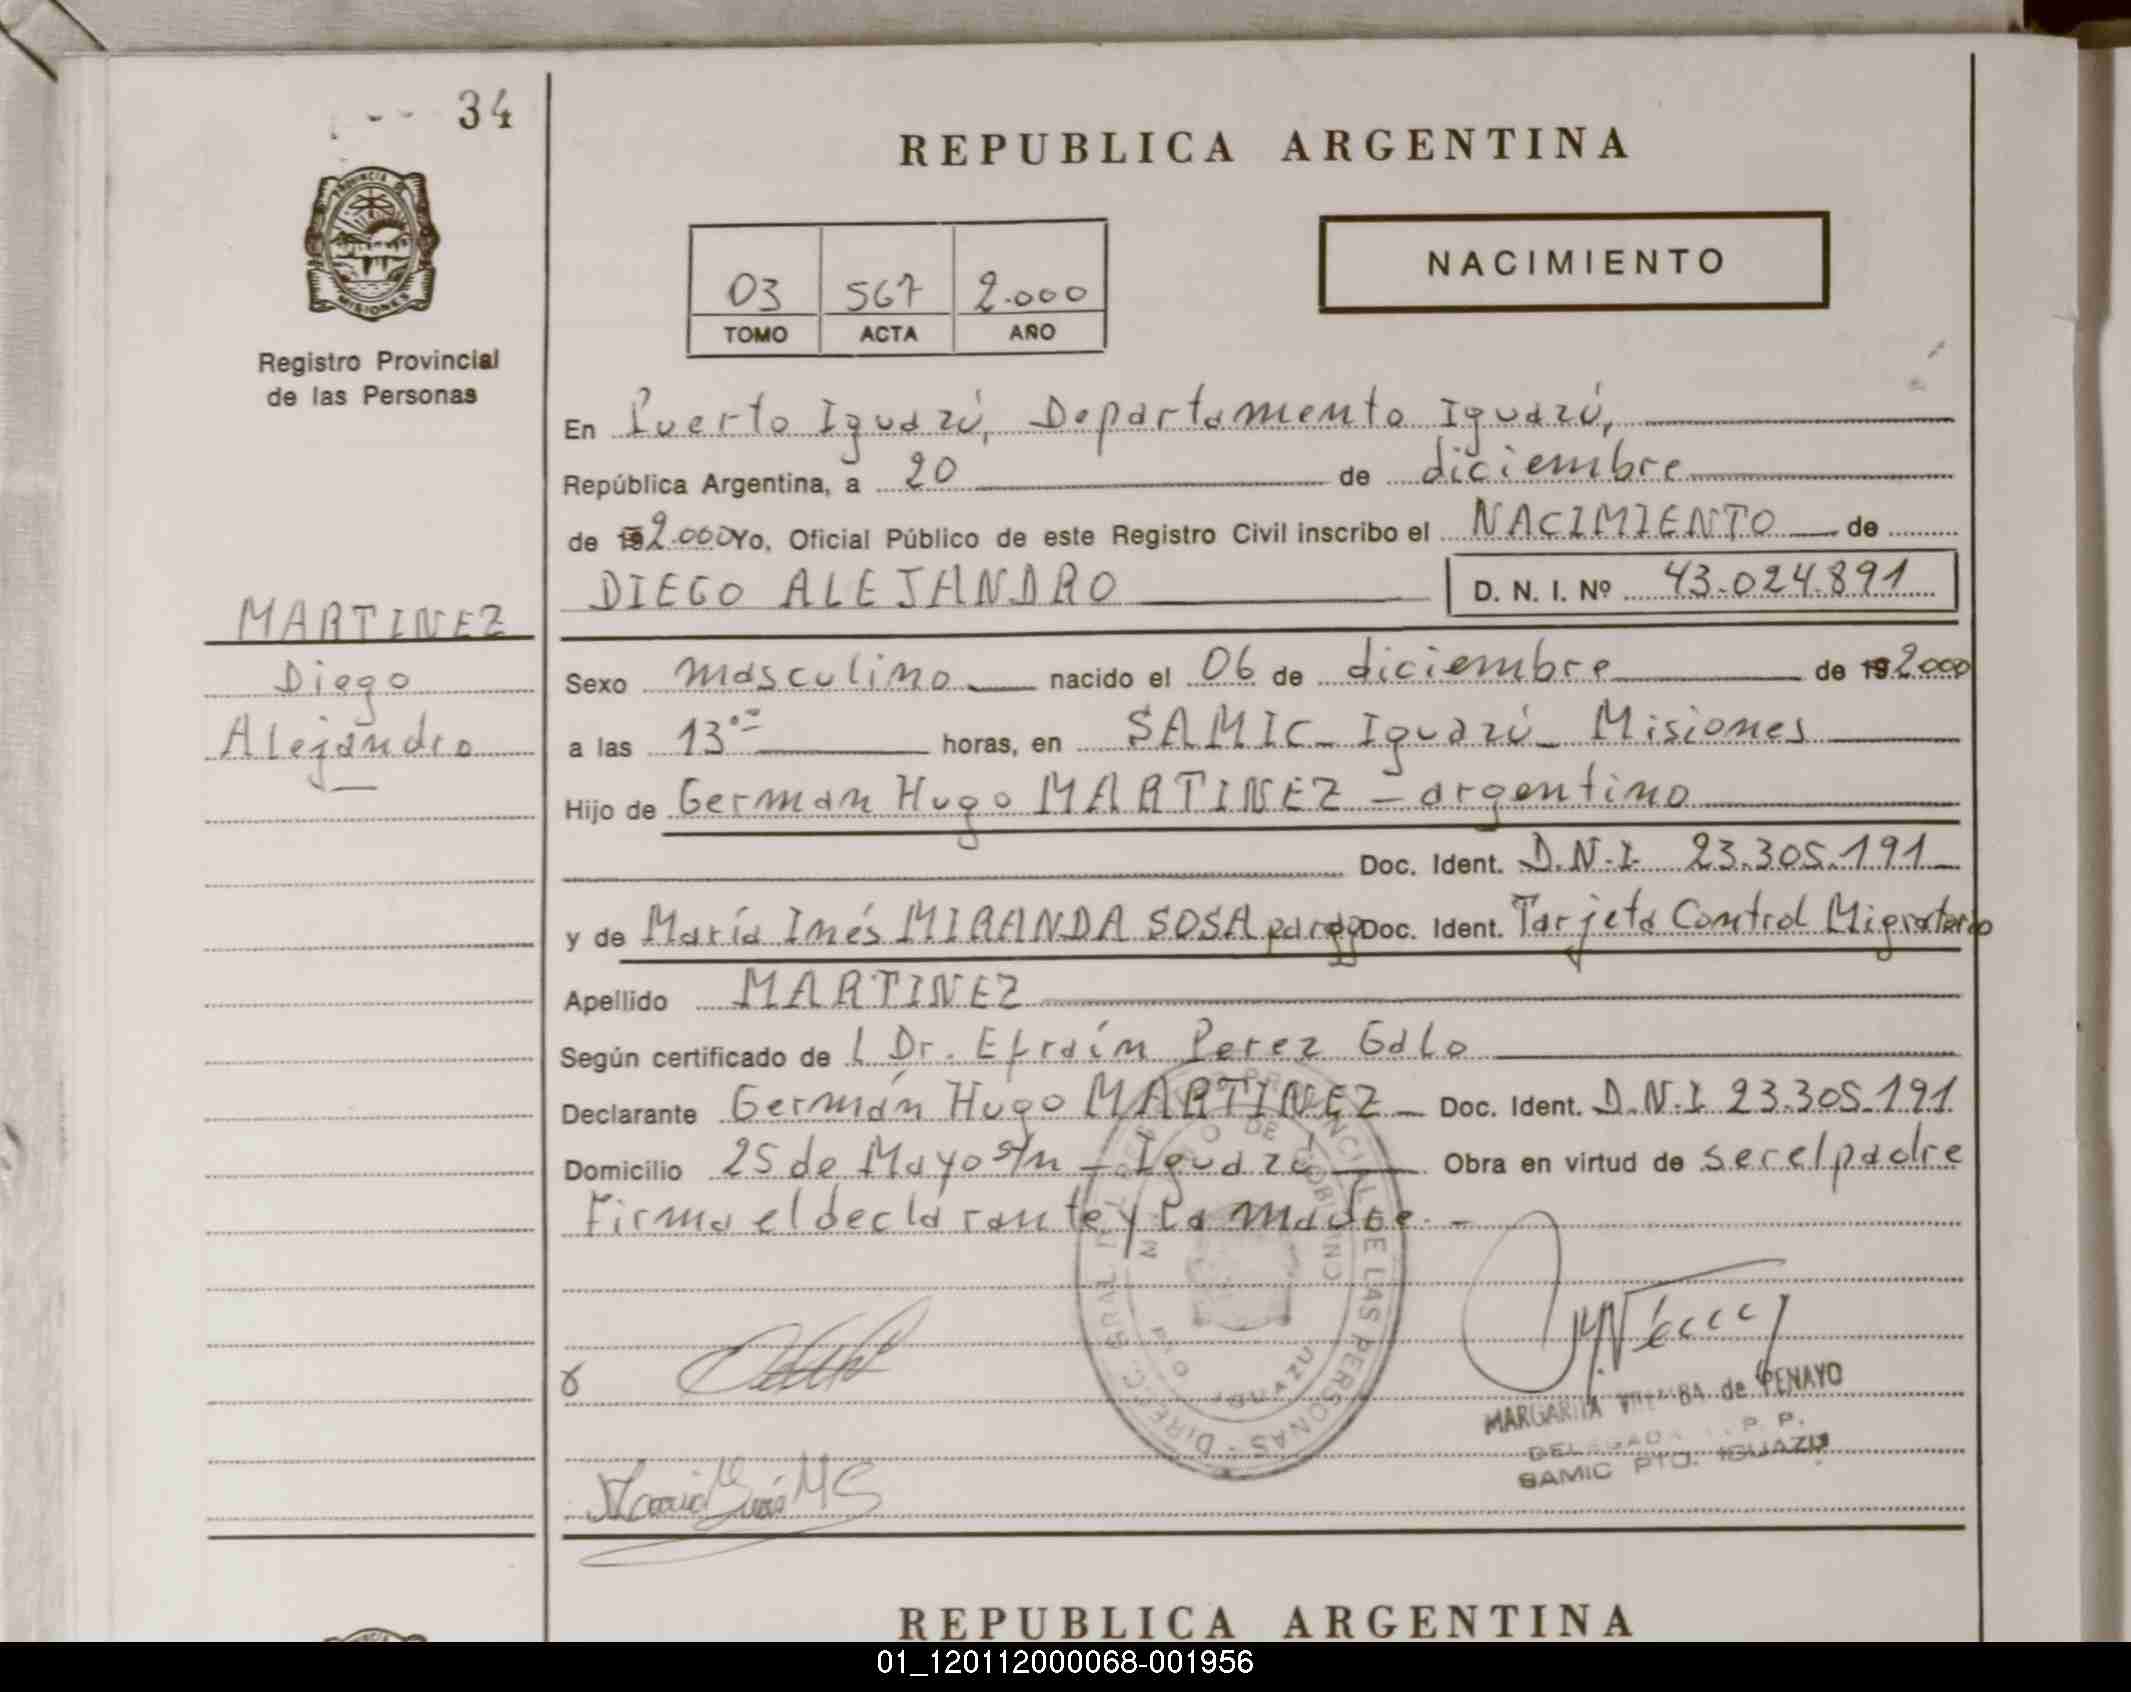 34
PROVINCIA DE
MISIONES
Registro Provincial
de las Personas
MARTINEZ
Diego
Alejandro
REPUBLICA ARGENTINA
03 567 2.000
TOMO ACTA AÑO
NACIMIENTO
En Puerto Iguazú, Departamento Iguazú,
República Argentina, a 20 de diciembre
de 192.000 Yo, Oficial Público de este Registro Civil inscribo el NACIMIENTO de
DIEGO ALEJANDRO D. N. I. Nº 43.024.891
Sexo masculino nacido el 06 de diciembre de 192.000
a las 13 horas, en SAMIC - Iguazú - Misiones
Hijo de German Hugo MARTINEZ - argentino
Doc. Ident. D.N.I. 23.305.191
y de María Inés MIRANDA SOSA Doc. Ident. Tarjeta Control Migratorio
Apellido MARTINEZ
Según certificado de l Dr. Efraín Perez Galo
Declarante Germán Hugo MARTINEZ - Doc. Ident. D.N.I 23.305.191
Domicilio 25 de Mayo s/n - Iguazú Obra en virtud de ser el padre
Firma el declarante y la madre. -
PROVINCIAL DE LAS PERSONAS - DIRECC. GRAL
IGUAZU
MARGARITA de PENAYO
DELEGADA P. P.
SAMIC PTO. IGUAZU
María Inés M S
REPUBLICA ARGENTINA
01_120112000068-001956